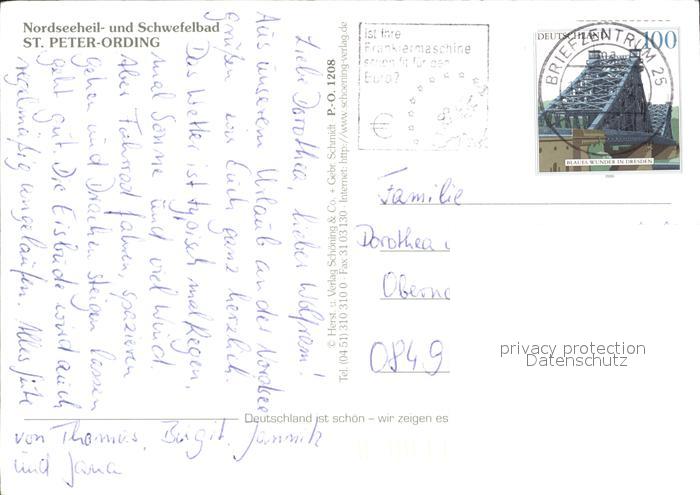 Nordseeheil- und Schwefelbad
ST. PETER-ORDING
Liebe Dorothea, lieber Wolfram!
Aus unserem Urlaub an der Nordsee
grüßen wir Euch ganz herzlich.
Das Wetter ist typisch mal Regen,
mal Sonne und viel Wind.
Aber Fahrrad fahren, spazieren
gehen und Drachen steigen lassen
geht gut. Die Eisbude wird auch
regelmäßig angelaufen. Alles Gute
von Thomas, Birgit, Jannik
und Jana
© Herst. u. Verlag Schöning & Co. + Gebr. Schmidt P.-O. 1208
Tel. (04 51) 310 310 0 · Fax 31 03 130 · Internet: http://www.schoening-verlag.de
Deutschland ist schön – wir zeigen es
Ist Ihre
Frankiermaschine
schon fit für den
Euro?
€
DEUTSCHLAND 100
BLAUES WUNDER IN DRESDEN
2000
BRIEFZENTRUM 25
Familie
Dorothea
Obern
0849
privacy protection
Datenschutz